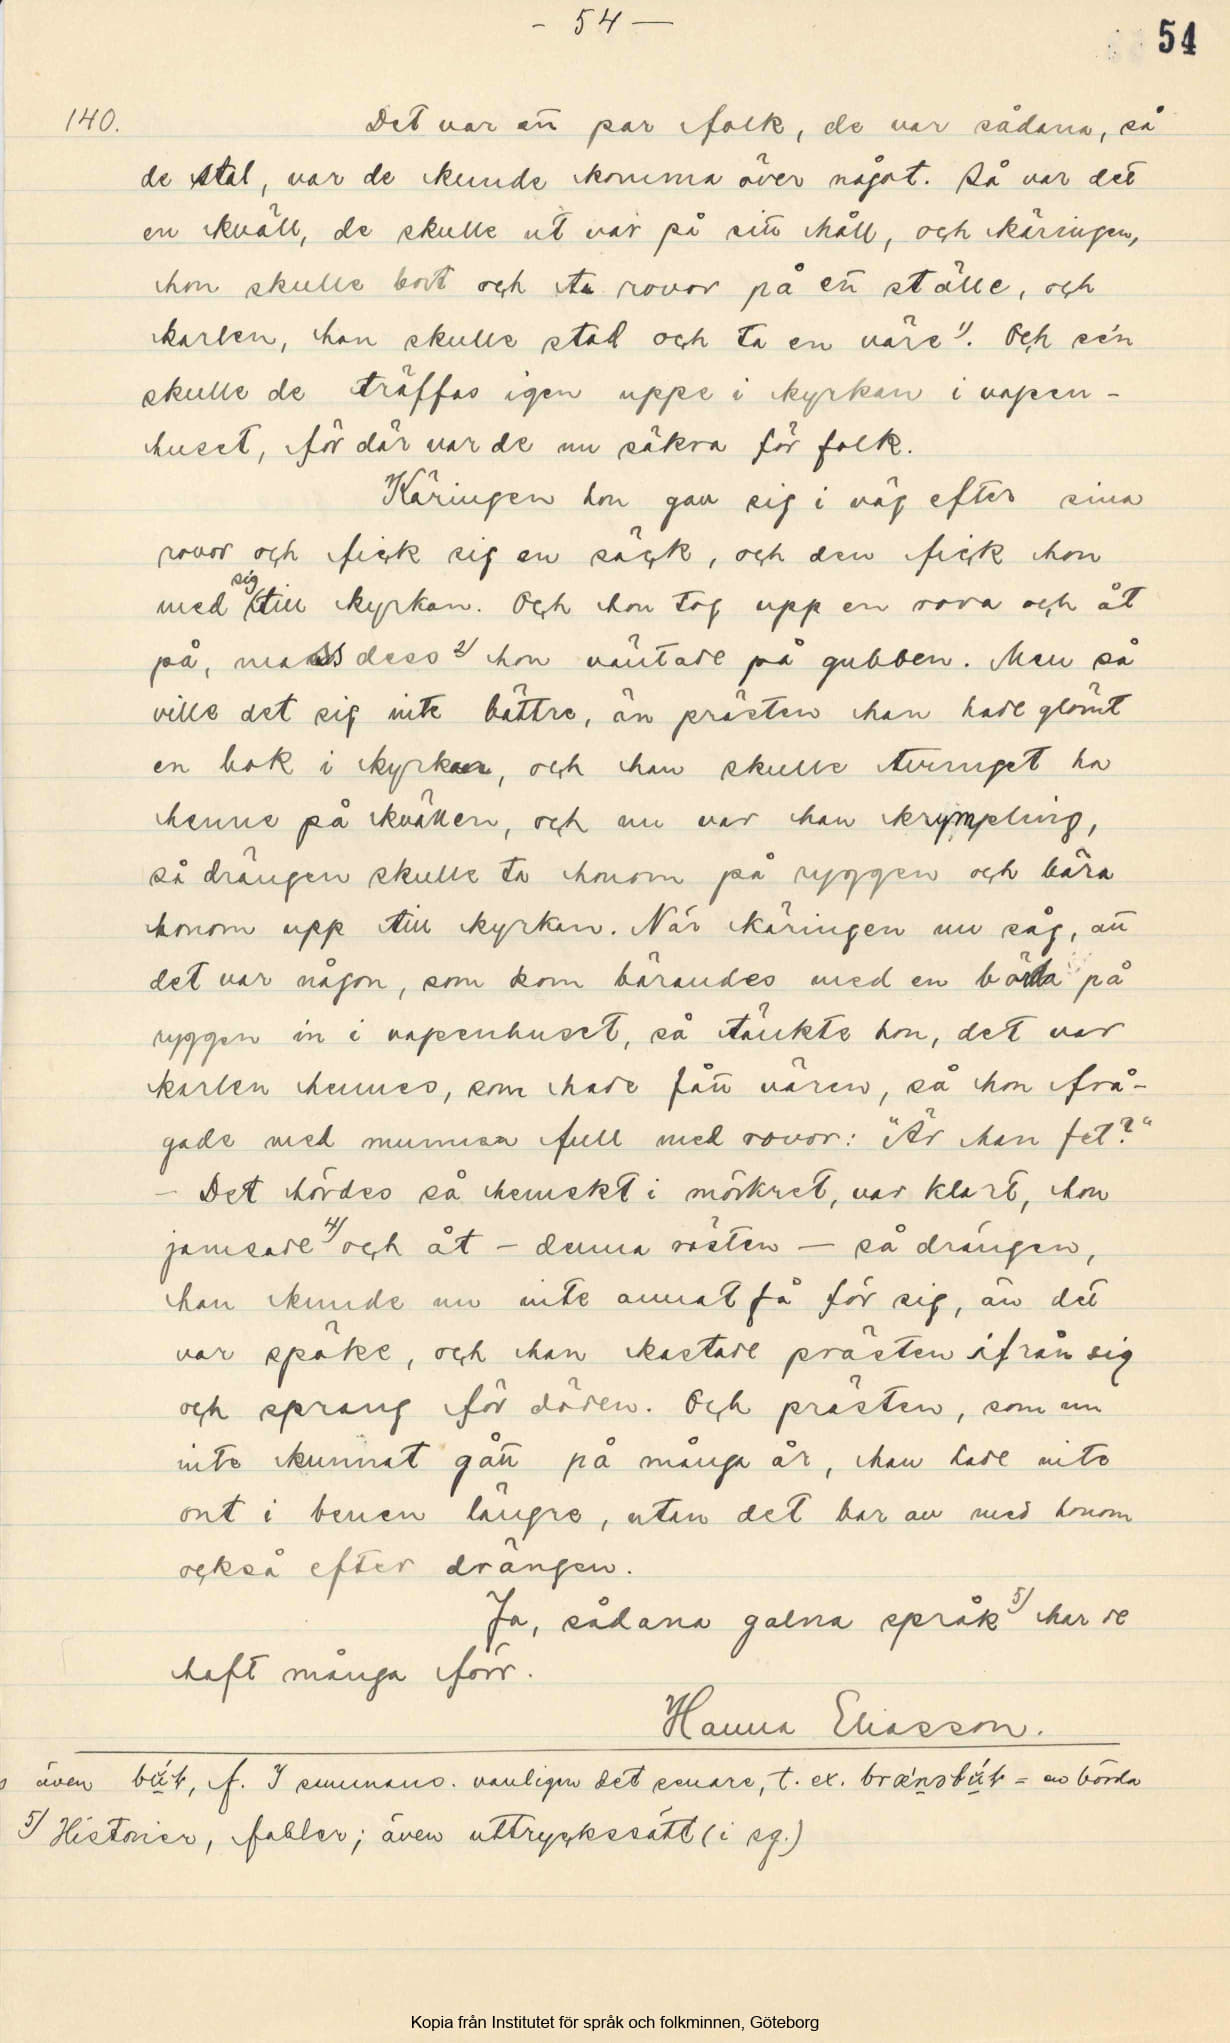 - 54 -
54
140. Det var ett par folk, de var sådana, så
de stal, var de kunde komma över något. Så var det
en kväll, de skulle ut var på sitt håll, och käringen,
hon skulle bort och ta rovor på ett ställe, och
karlen, han skulle stad och ta en väre 1). Och sén
skulle de träffas igen uppe i kyrkan i vapen-
huset, för där var de nu säkra för folk.
Käringen hon gav sig i väg efter sina
rovor och fick sig en säck, och den fick hon
med sig till kyrkan. Och hon tog upp en rova och åt
på, mass dess 2) hon väntade på gubben. Men så
ville det sig inte bättre, än prästen han hade glömt
en bok i kyrkan, och han skulle tvunget ha
henne på kvällen, och nu var han krympling,
så drängen skulle ta honom på ryggen och bära
honom upp till kyrkan. När käringen nu såg, att
det var någon, som kom bärandes med en börda på
ryggen in i vapenhuset, så tänkte hon, det var
karlen hennes, som hade fått vären, så hon frå-
gade med munnen full med rovor: "Är han fet?"
- Det hördes så hemskt i mörkret, var klart, hon
jamsade 4) och åt - denna rösten - så drängen,
han kunde nu inte annat få för sig, än det
var spöke, och han kastade prästen ifrån sig
och sprang för döden. Och prästen, som nu
inte kunnat gått på många år, han hade inte
ont i benen längre, utan det bar av med honom
också efter drängen.
Ja, sådana galna språk 5) har de
haft många förr.
Hanna Eliasson.
även f. I summans. vanligen det senare, t. ex. = en börda
5) Historier, fabler; även uttryckssätt (i sg.)
Kopia från Institutet för språk och folkminnen, Göteborg